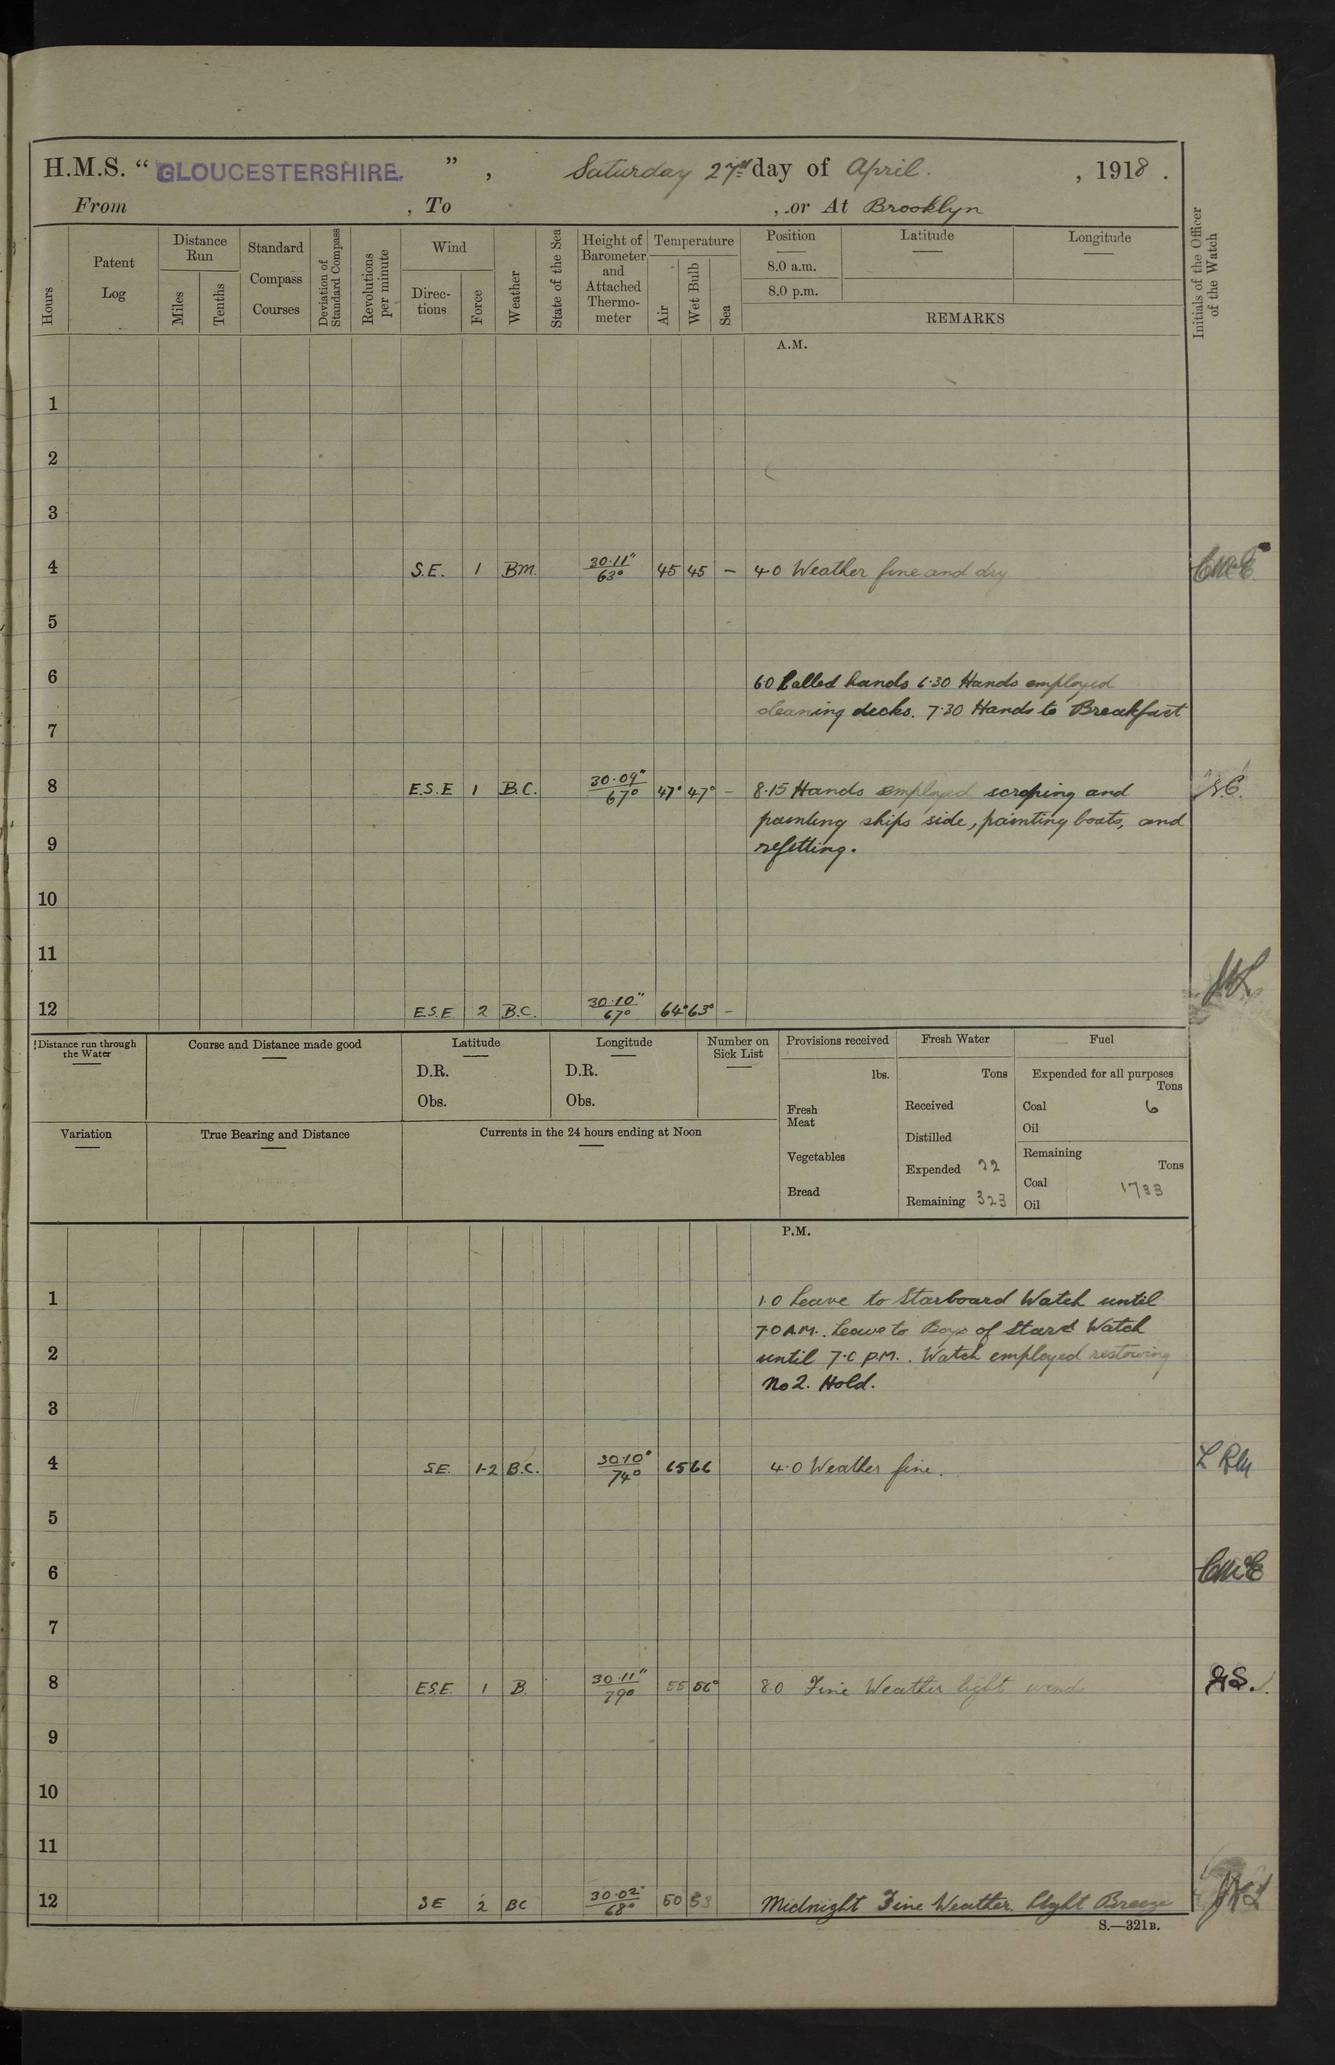 H.M.S. "GLOUCESTERSHIRE.", Saturday 27th day of April. , 1918.
From , To , or At Brooklyn
Hours
Patent Log
Distance Run
Miles
Tenths
Standard Compass Courses
Deviation of Standard Compass
Revolutions per minute
Wind
Direc-tions
Force
Weather
State of the Sea
Height of Barometer and Attached Thermo-meter
Temperature
Air
Wet Bulb
Sea
Position
8.0 a.m.
8.0 p.m.
Latitude
Longitude
REMARKS
Initials of the Officer of the Watch
A.M.
1
2
3
4 S.E. 1 BM. 30.11" 63° 45 45 – 4.0 Weather fine and dry CMcE
5
6 6.0 Called hands 6.30 Hands employed
cleaning decks. 7.30 Hands to Breakfast
7
8 E.S.E 1 B.C. 30.09" 67° 47° 47° – 8.15 Hands employed scraping and
painting ships side, painting boats, and
9 refitting.
10
11
12 E.S.E 2 B.C. 30.10" 67° 64° 63° –
Distance run through the Water
Course and Distance made good
Latitude
D.R.
Obs.
Longitude
D.R.
Obs.
Number on Sick List
Provisions received
lbs.
Fresh Meat
Vegetables
Bread
Fresh Water
Tons
Received
Distilled
Expended 22
Remaining 323
Fuel
Expended for all purposes
Tons
Coal 6
Oil
Remaining
Tons
Coal 1733
Oil
Variation
True Bearing and Distance
Currents in the 24 hours ending at Noon
P.M.
1 1.0 Leave to Starboard Watch until
7.0 A.M. Leave to Boys of Stard Watch
2 until 7.0 P.M. . Watch employed restowing
No 2. Hold.
3
4 S.E. 1-2 B.C. 30.10" 74° 65 66 4.0 Weather fine.
5
6 CMcE
7
8 E.S.E. 1 B. 30.11" 55 56° 8.0 Fine Weather light winds
9
10
11
12 SE 2 BC 30.02" 68° 50 53 Midnight Fine Weather. light Breeze
S.—321B.